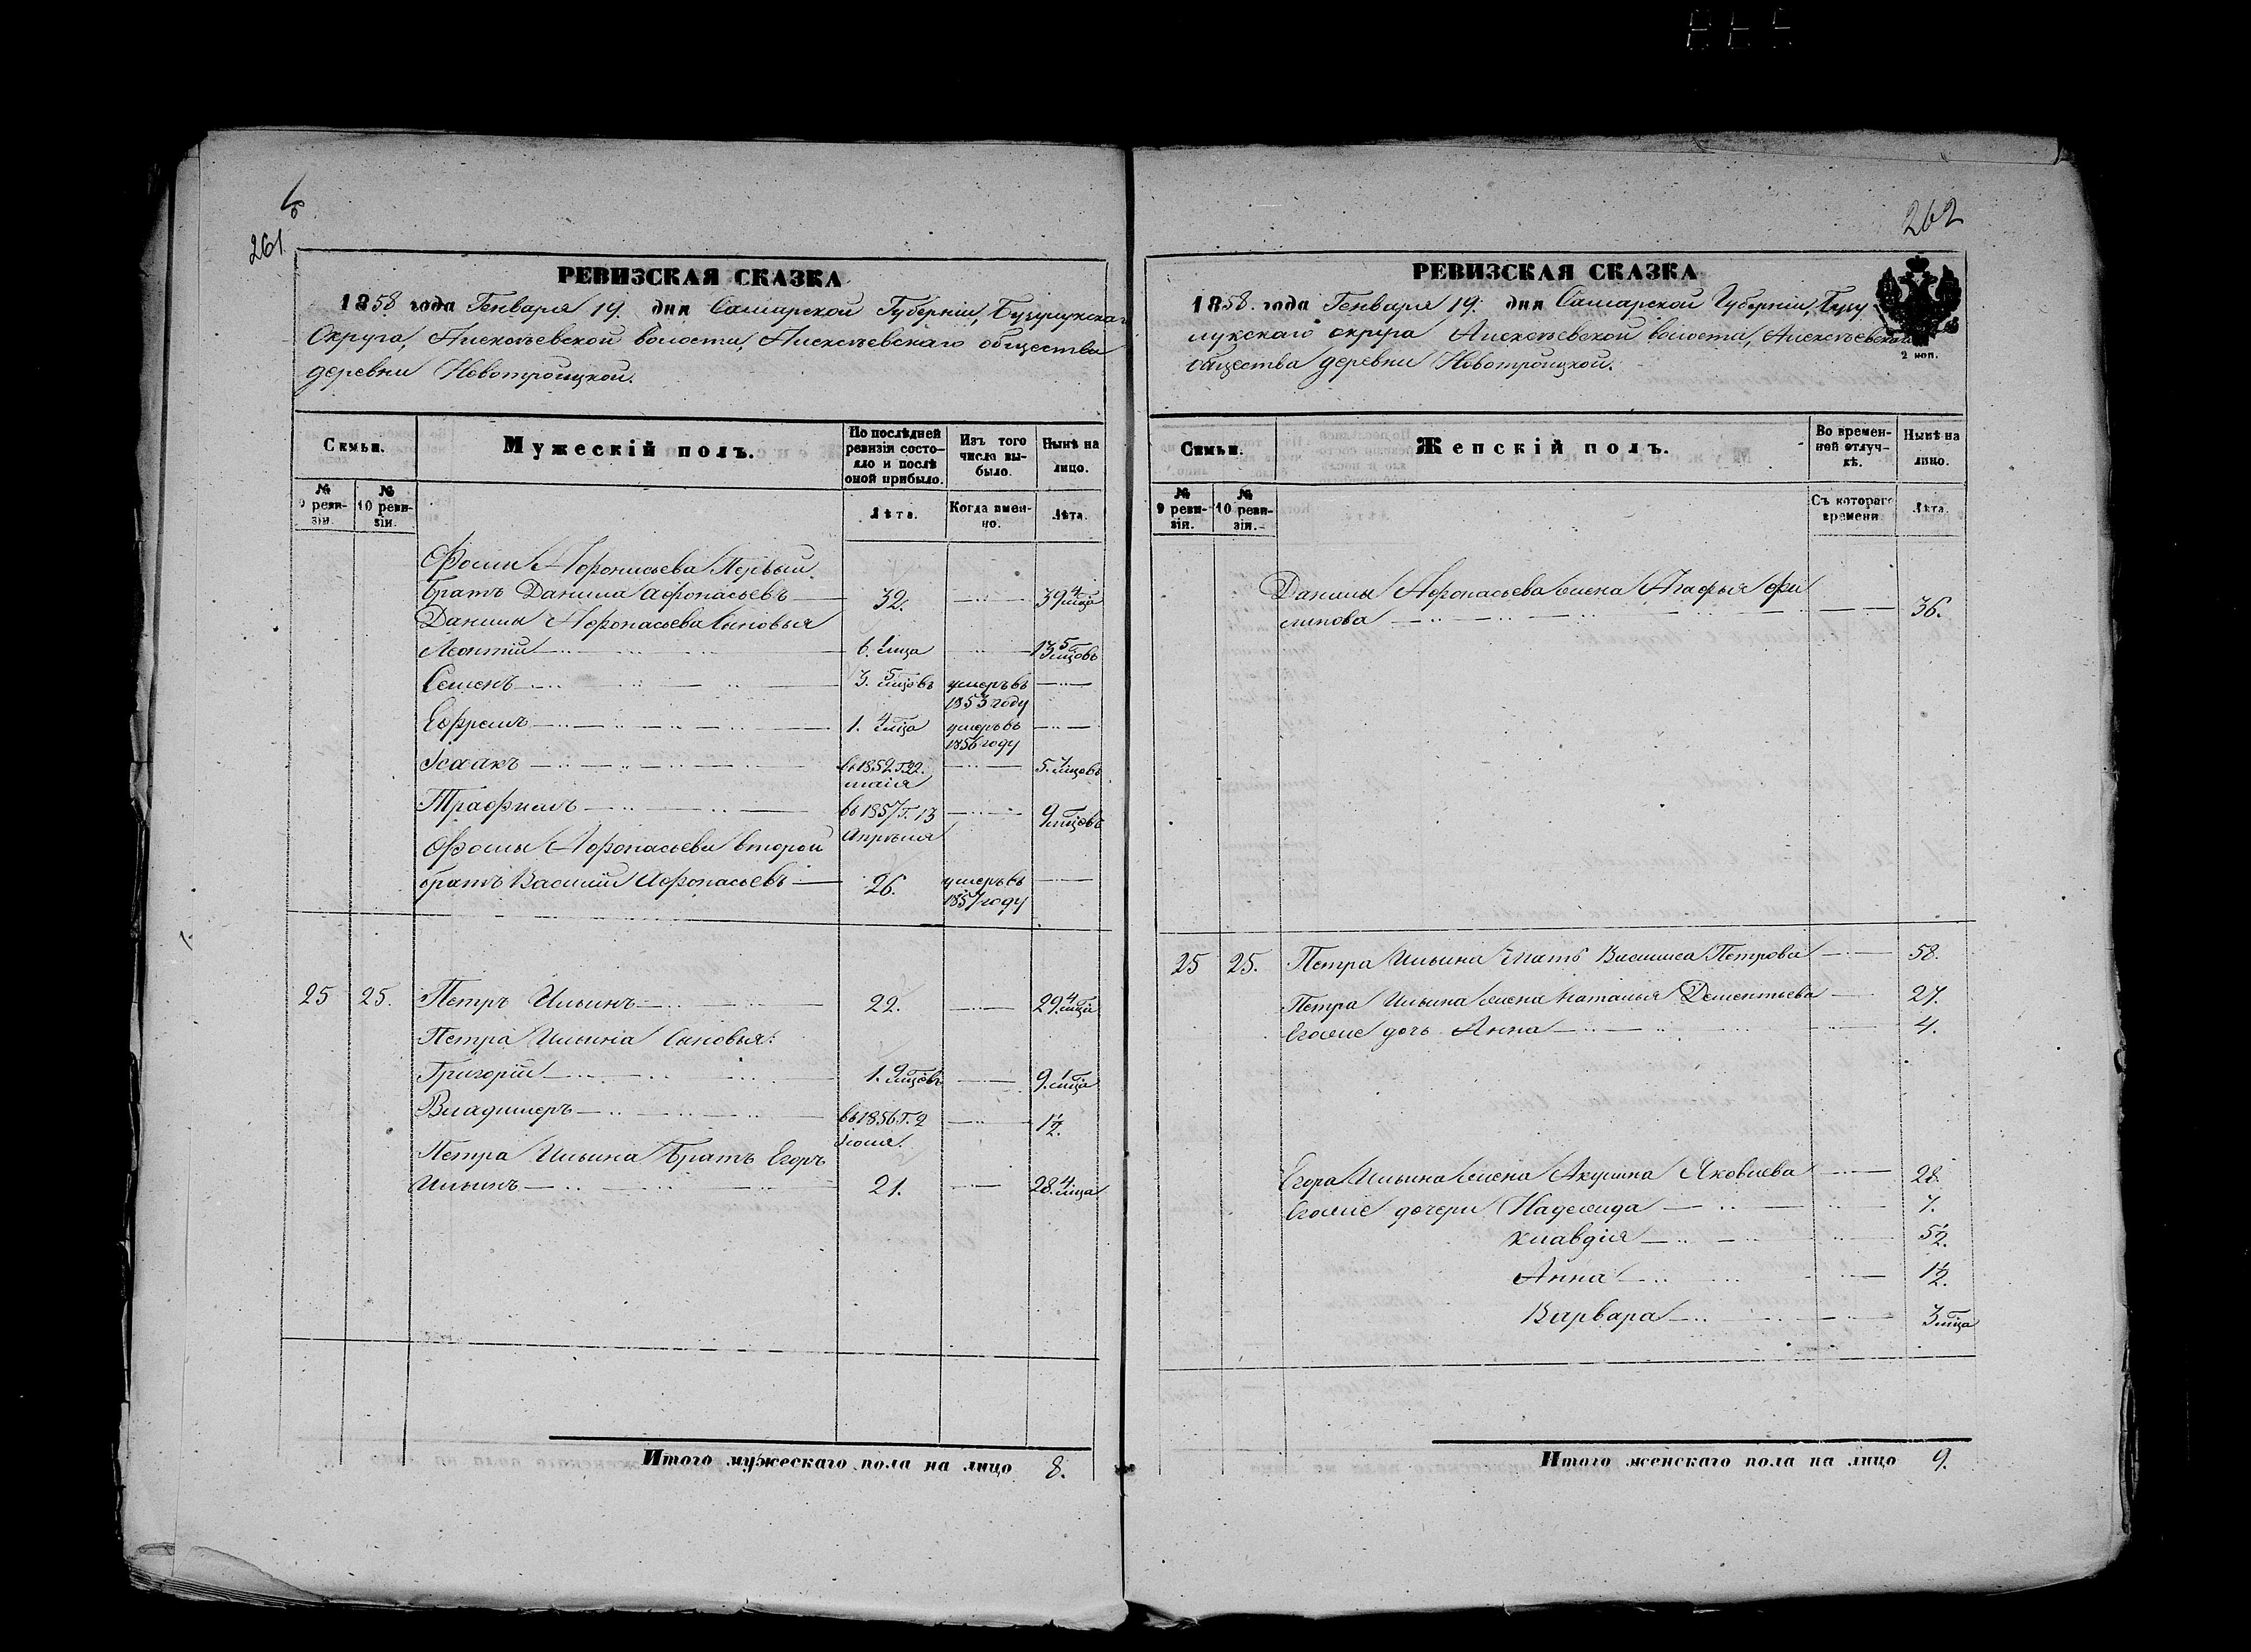 6
261
РЕВИЗСКАЯ СКАЗКА
1858 года Генваря 19. дня Самарской Губерніи, Бузулукскаго
Округа, Алексѣевской волости, Алексѣевскаго общества
деревни Новотроицкой.
Семьи.
Мужескій полъ.
По послѣдней ревизіи состояло и послѣ оной прибыло.
Изъ того числа выбыло.
Нынѣ на лицо.
№ 9 ревизіи.
№ 10 ревизіи.
Лѣта.
Когда именно.
Лѣта.
Фомы Афонасьева Первый
братъ Данила Афонасьевъ 32. 39 4 мца
Данилы Афонасьева сыновья
Леонтій 6. мца 13 5 мцовъ
Семенъ 3. 5 мцовъ умеръ въ 1853 году
Ефремъ 1. 4 мца умеръ въ 1856 году
Исаакъ въ 1852 г. 22. маія 5. 7 мцовъ
Трафимъ въ 1857 г. 13 Апрѣля 9 мцовъ
Фомы Афонасьева второй
братъ Василій Афонасьевъ 26. умеръ въ 1857 году
25 25. Петръ Ильинъ 22. 29. 4 мца
Петра Ильина сыновья:
Григорій 1. 9 мцовъ 9. 1 мца
Владимеръ въ 1856 г. 2 Іюля. 1 1/2.
Петра Ильина братъ Егоръ
Ильинъ 21. 28. 4 мца
Итого мужескаго пола на лицо 8.
262
РЕВИЗСКАЯ СКАЗКА
1858. года Генваря 19. дня Самарской Губерніи, Бузу
лукскаго округа Алексѣевской волости, Алексѣевскаго
общества деревни Новотроицкой.
2 коп.
Семьи.
Женскій полъ.
Во временной отлучкѣ.
Нынѣ на лицо.
№ 9 ревизіи.
№ 10 ревизіи.
Съ котораго времени
Лѣта.
Данилы Афонасьева жена Агафья Фи
липова 36.
25 25. Петра Ильина мать Василиса Петрова 58.
Петра Ильина жена Наталья Дементьева 27.
Егоже дочь Анна 4.
Егора Ильина жена Акулина Яковлева 28.
Егоже дочери Надежида 7.
Клавдія 5 1/2.
Анна 1 1/2.
Варвара 3 мца
Итого женскаго пола на лицо 9.